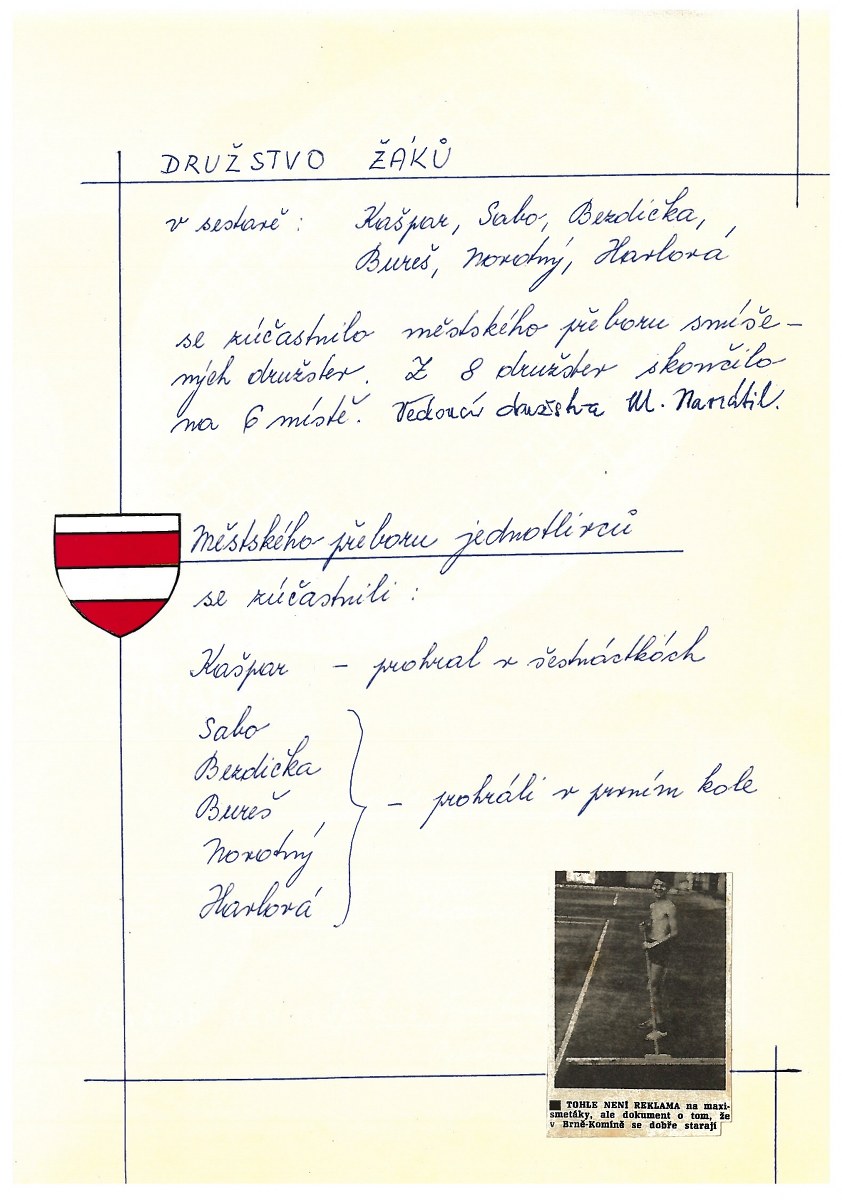 DRUŽSTVO ŽÁKŮ
v sestavě : Kašpar, Sabo, Bezdička,
Bureš, Novotný, Havlová
se zúčastnilo městského přeboru smíše-
ných družstev. Z 8 družstev skončilo
na 6 místě. Vedoucí družstva M. Navrátil.
Městského přeboru jednotlivců
se zúčastnili :
Kašpar - prohrál v šestnáctkách
Sabo
Bezdička
Bureš
Novotný
Havlová
- prohráli v prvním kole
TOHLE NENÍ REKLAMA na maxi-
smetáky, ale dokument o tom, že
v Brně-Komíně se dobře starají